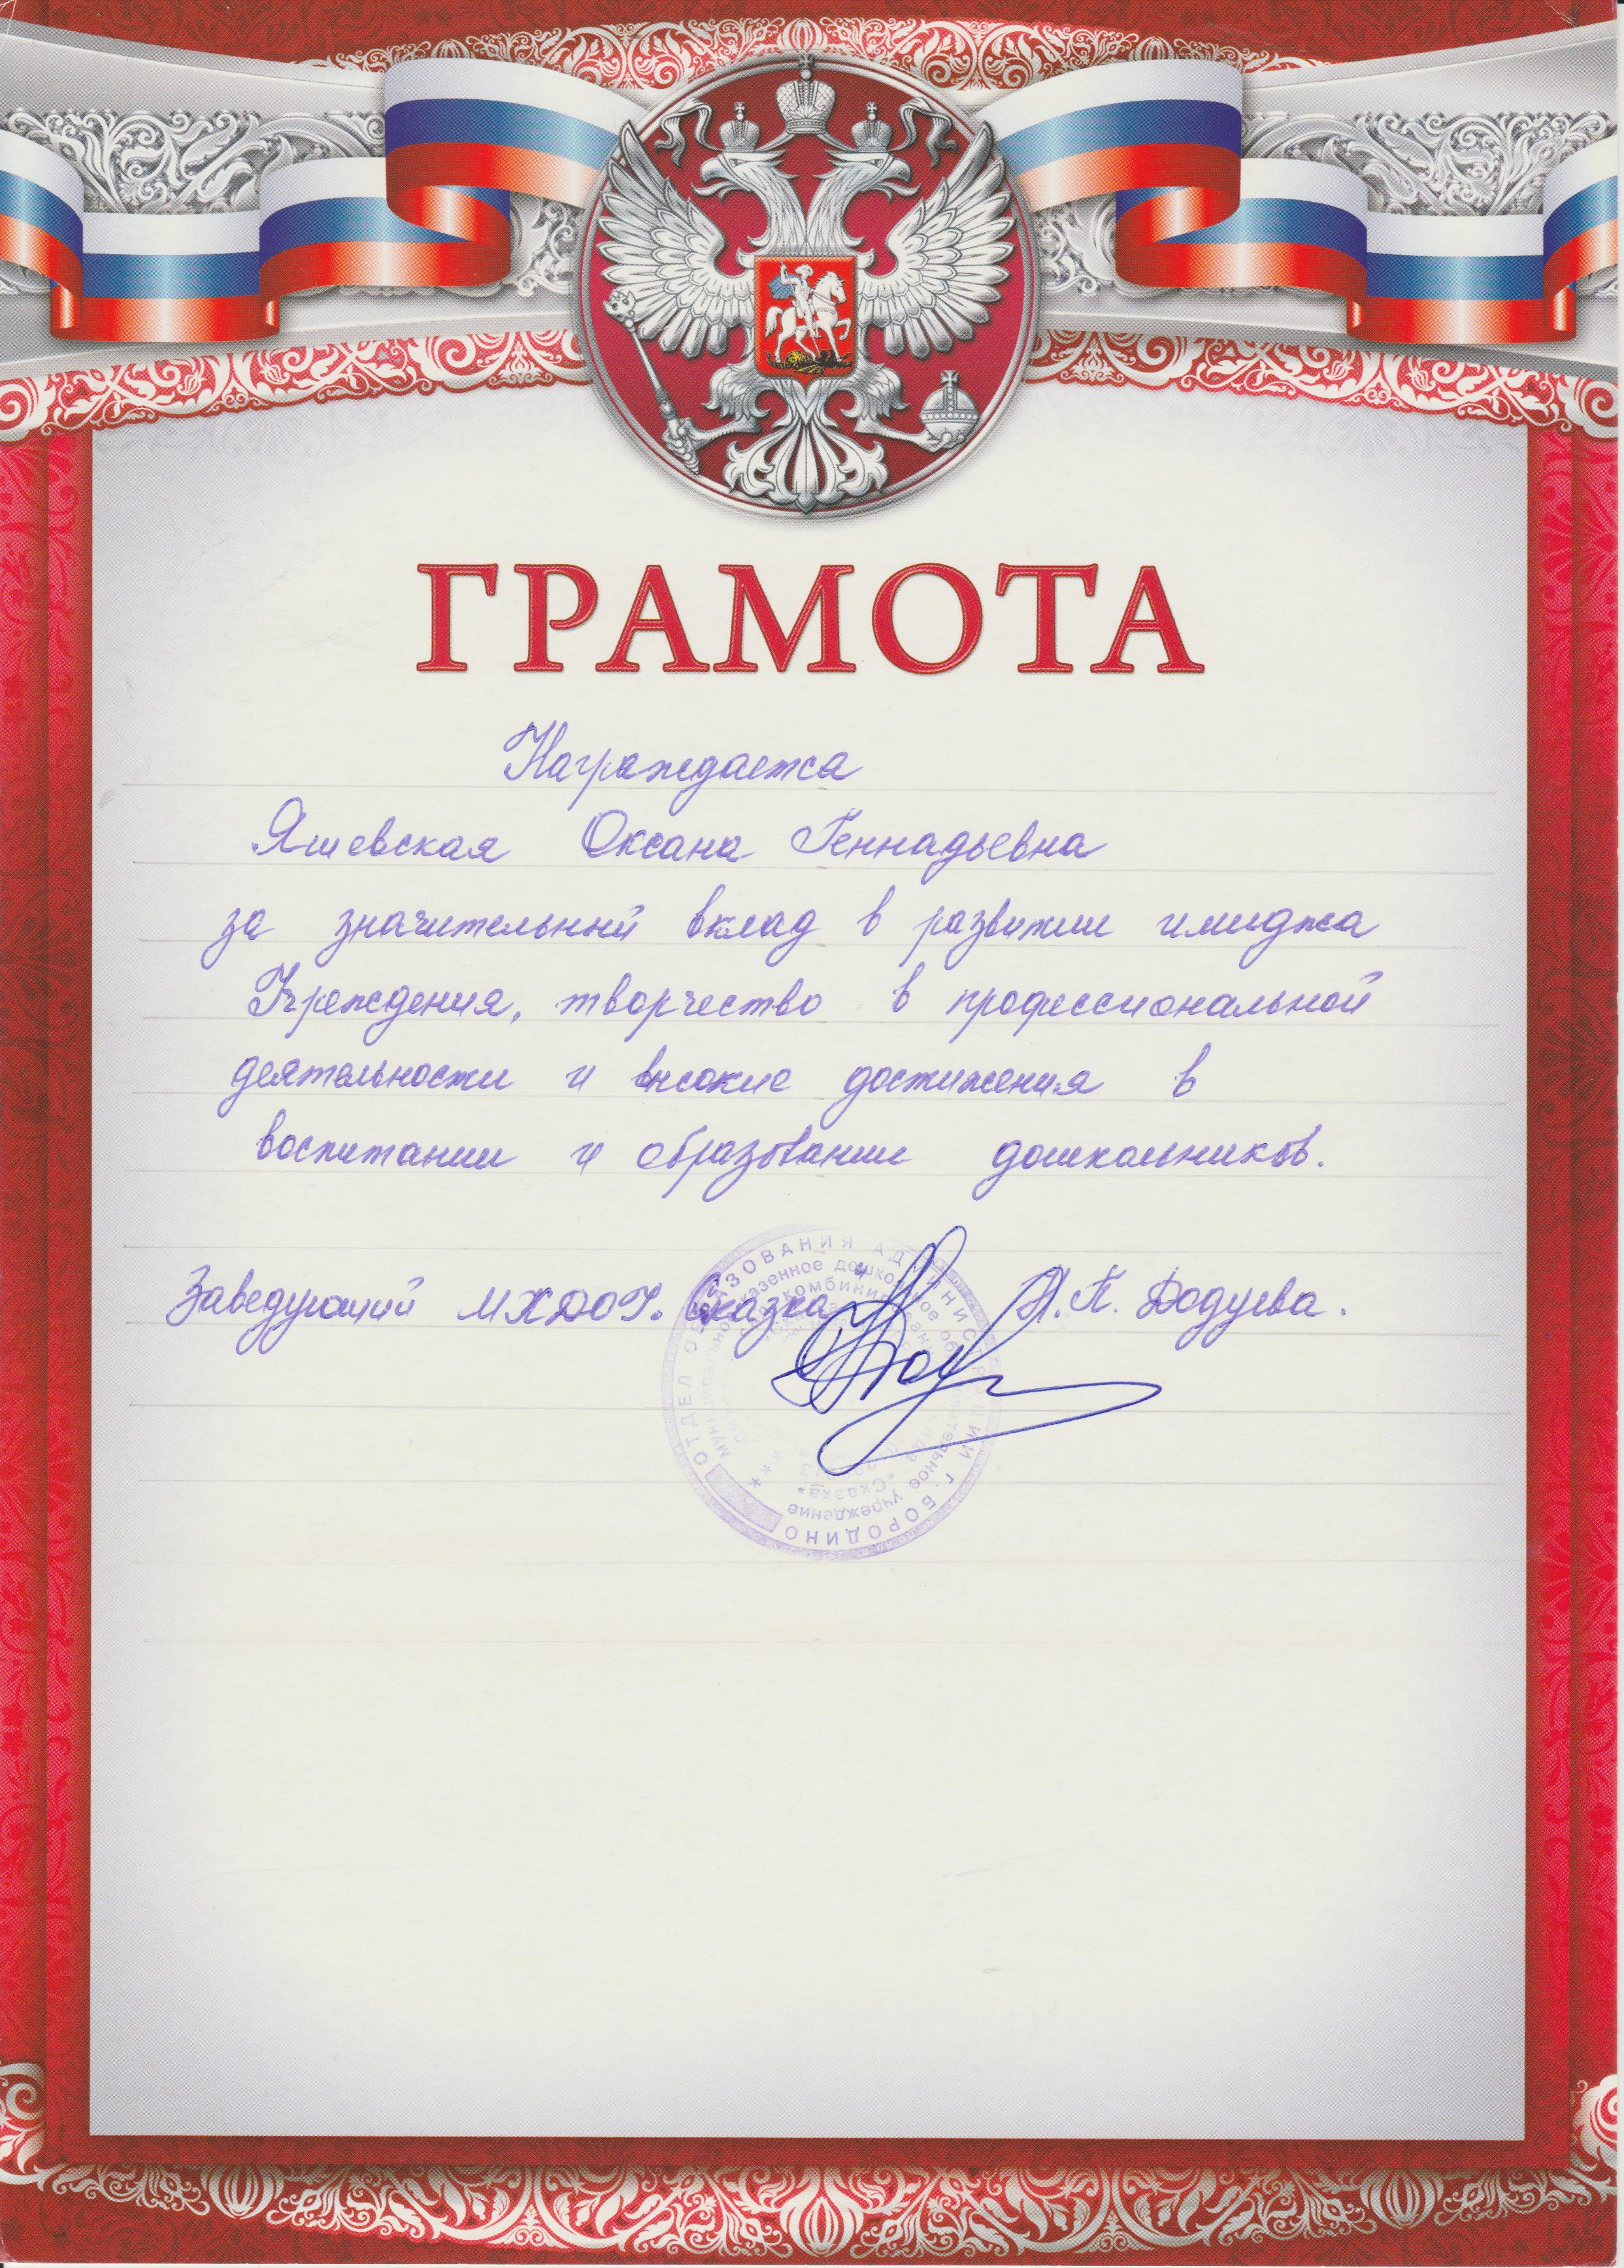 ГРАМОТА
Награждается
Яшевская Оксана Геннадьевна
за значительный вклад в развитии имиджа
Учреждения, творчество в профессиональной
деятельности и высокие достижения в
воспитании и образовании дошкольников.
Заведующий МКДОУ. Сказка Л.П. Додуева.
ОТДЕЛ ОБРАЗОВАНИЯ АДМИНИСТРАЦИИ Г. БОРОДИНО
казенное дошкольное образовательное учреждение
комбинированного
"Сказка"